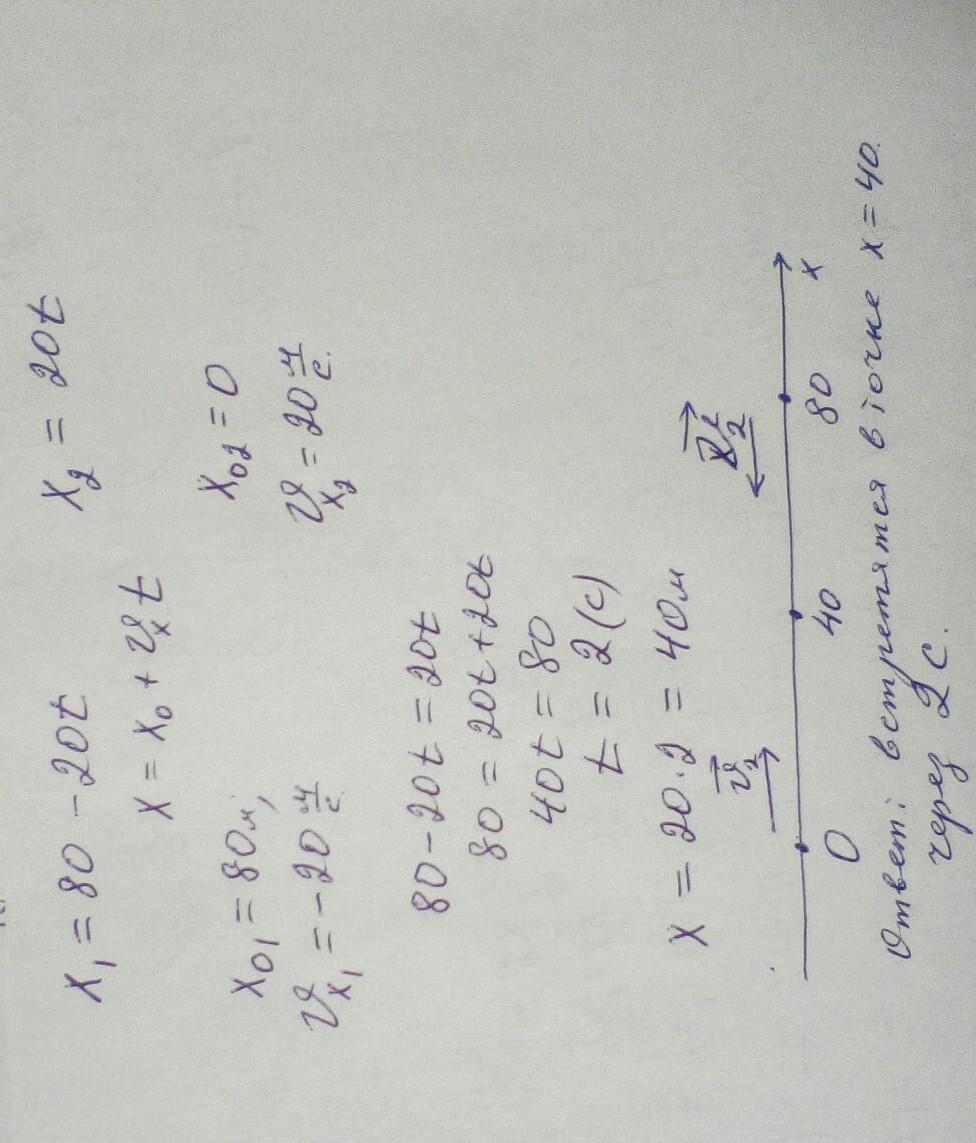 x₁ = 80 - 20t x₂ = 20t
x = x₀ + υₓt
x₀₁ = 80м; x₀₂ = 0
υₓ₁ = -20 м/с υₓ₂ = 20 м/с.
80 - 20t = 20t
80 = 20t + 20t
40t = 80
t = 2 (с)
x = 20·2 = 40м
υ₂
0 40 80 x
Ответ: встретятся в точке x = 40.
через 2 с.